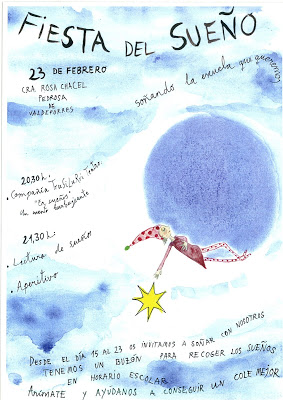 FIESTA DEL SUEÑO
23 DE FEBRERO
soñando la escuela que queremos
CRA. ROSA CHACEL
PEDROSA
DE
VALDEPORRES
20,30 h.:
• Compañía Teatro
"En sueños"
Un monte
21,30 h.:
• Lectura de sueños
• Aperitivo
DESDE EL DÍA 15 AL 23 OS INVITAMOS A SOÑAR CON NOSOTROS
TENEMOS UN BUZÓN PARA RECOGER LOS SUEÑOS
EN HORARIO ESCOLAR
ANÍMATE Y AYÚDANOS A CONSEGUIR UN COLE MEJOR